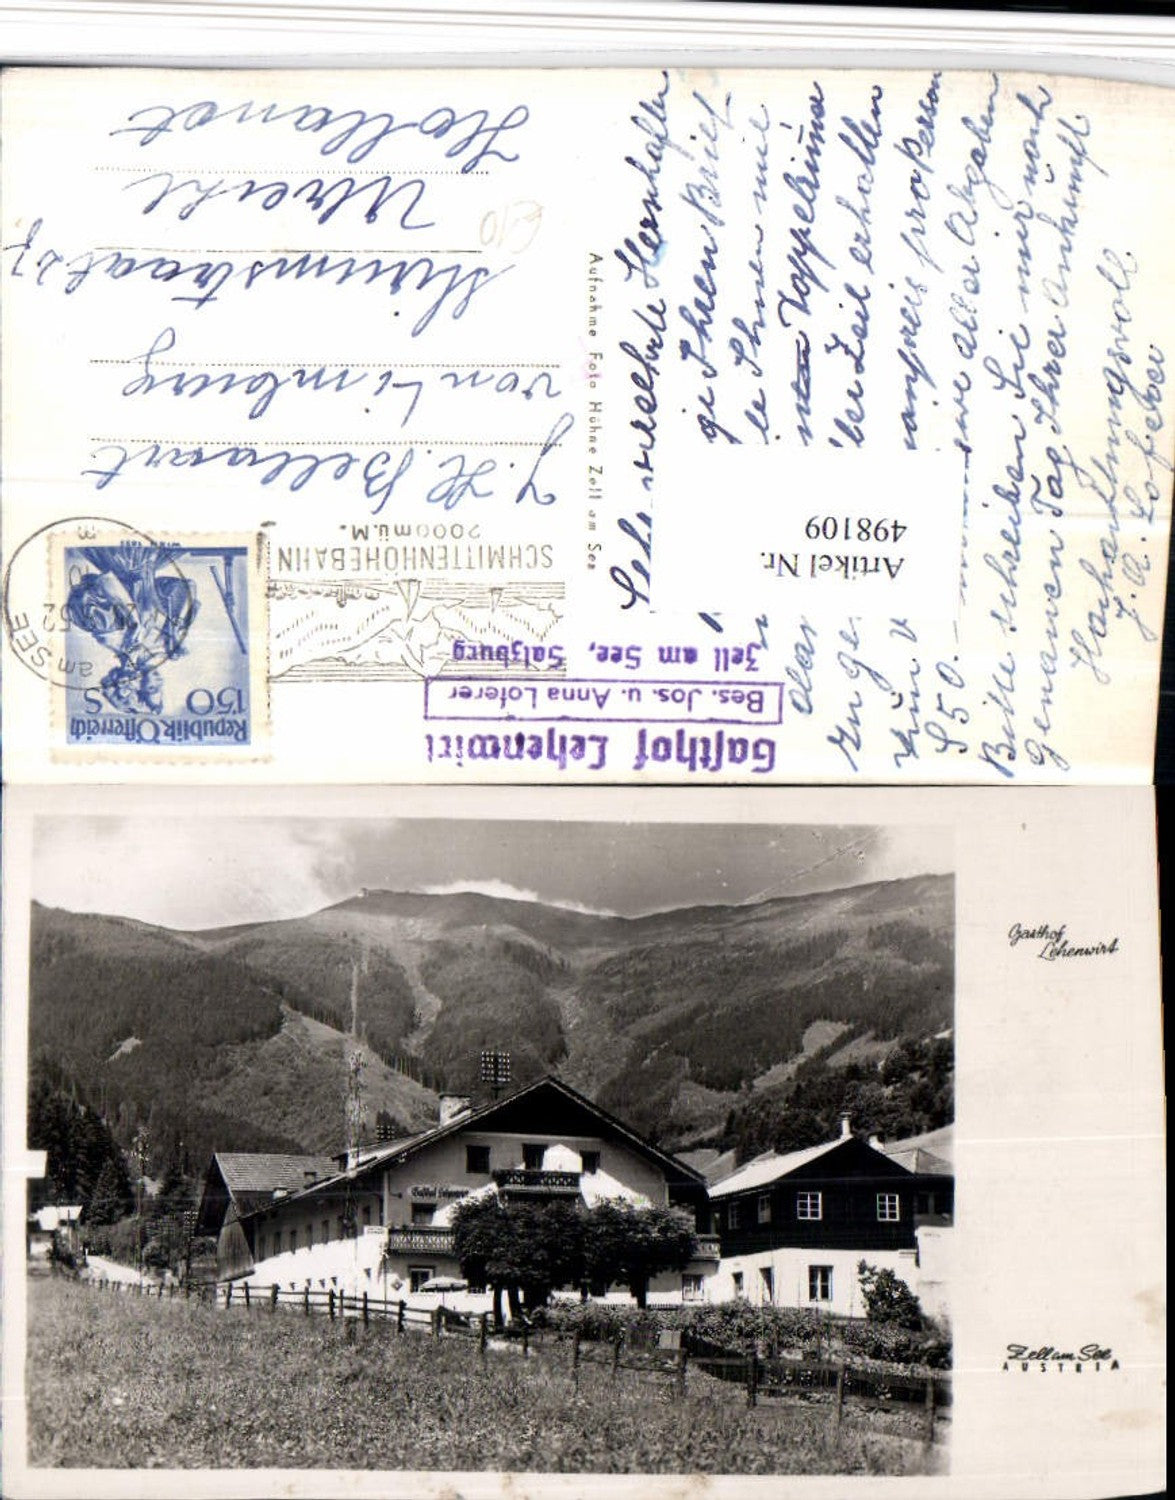 Sehr verehrte Herrschaften
Ihren Brief
Ihnen mit
Doppelzimmer
bei Zeit erhalten
pro Person
S 50.-
alle Abgaben
Bitte schreiben Sie mir noch
Genauen Tag Ihrer Ankunft
Hochachtungsvoll
J. A. Loferer
Artikel Nr.
498109
Aufnahme Foto Höhne Zell am See
Gasthof Lehenwirt
Bes. Jos. u. Anna Loferer
Zell am See, Salzburg
SCHMITTENHÖHEBAHN
2000 m ü. M.
am SEE
Republik Österreich
1.50 S
J. H. Bellaart
von Limburg
Stirumstraat 27
Utrecht
Holland
Gasthof
Lehenwirt
Gasthof Lehenwirt
Zell am See
AUSTRIA